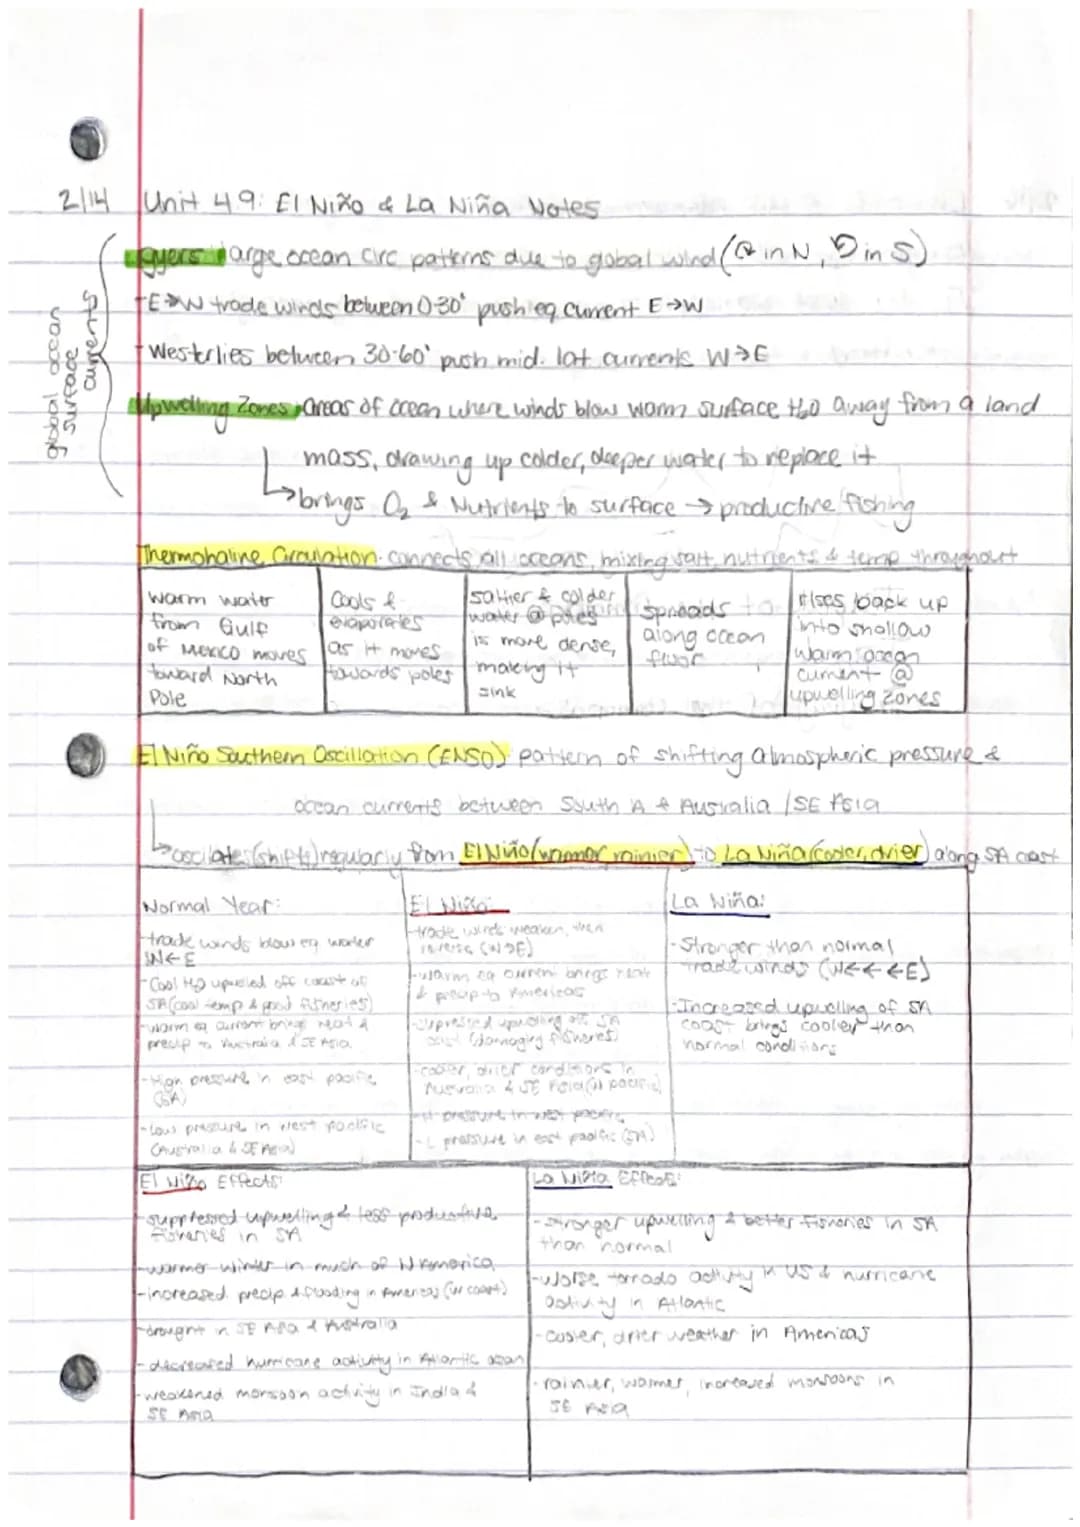 2/14 Unit 4.9: El Niño & La Niña Notes
global ocean surface currents
gyers large ocean circ patterns due to global wind (↻ in N, ↺ in S)
-E→W trade winds between 0-30° push eq current E→W
-Westerlies between 30-60° push mid. lat currents W→E
Upwelling Zones Areas of ocean where winds blow warm surface H2O away from a land
mass, drawing up colder, deeper water to replace it
↳brings O2 & Nutrients to surface → productive fishing
Thermohaline Circulation: connects all oceans, mixing salt, nutrients & temp throughout
warm water
from Gulf
of Mexico moves
toward North
Pole
Cools &
evaporates
as it moves
towards poles
saltier & colder
water @ poles
is more dense,
making it
sink
spreads
along ocean
floor
rises back up
into shallow
warm ocean
current @
upwelling zones
El Niño Southern Oscillation (ENSO) pattern of shifting atmospheric pressure &
ocean currents between South A & Australia /SE Asia
↳oscilates (shifts) regularly from El Niño (warmer, rainier) to La Niña (cooler, drier) along SA coast
Normal Year:
-trade winds blow eq water
W←E
-Cool H2O upwelled off coast of
SA (cool temp & good fisheries)
-warm eq current brings heat &
precip to Australia & SE Asia
-High pressure in east pacific
(SA)
-Low pressure in west pacific
(Australia & SE Asia)
El Niño:
-trade winds weaken, then
reverse (W→E)
-warm eq current brings heat
& precip to Americas
-supressed upwelling off SA
coast (damaging fisheries)
-cooler, drier conditions in
Australia & SE Asia (W pacific)
-H pressure in west pacific
-L pressure in east pacific (SA)
La Niña:
-Stronger than normal
trade winds (W←←←E)
-Increased upwelling of SA
coast brings cooler than
normal conditions
El Niño Effects:
-suppressed upwelling & less productive
fisheries in SA
-warmer winter in much of N America
-increased precip & flooding in Americas (W coast)
-drought in SE Asia & Australia
-decreased hurricane activity in Atlantic ocean
-weakened monsoon activity in India &
SE Asia
La Niña Effects:
-stronger upwelling & better fisheries in SA
than normal
-worse tornado activity in US & hurricane
activity in Atlantic
-cooler, drier weather in Americas
-rainier, warmer, increased monsoons in
SE Asia